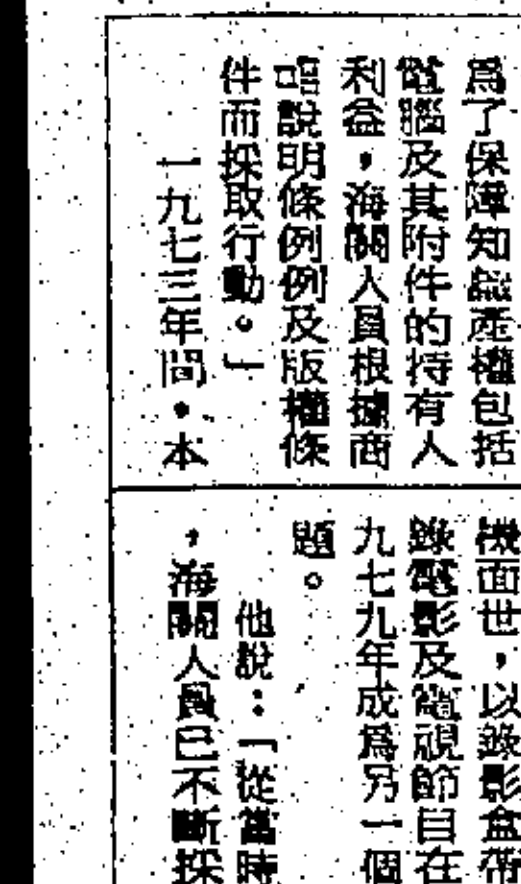 爲了保障知識產權包括
電腦及其附件的持有人
利益，海關人員根據商
品說明條例例及版權條
件而採取行動。」
一九七三年間，本
機面世，以錄影盒帶
錄電影及電視節目在
九七九年成爲另一個
題。
他說：「從當時
，海關人員已不斷採